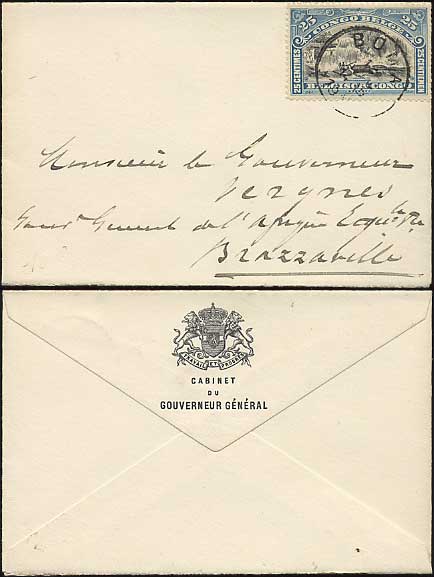 25 CONGO BELGE 25
25 CENTIMES
25 CENTIMEN
BELGISCH CONGO
BOMA
Monsieur le Gouverneur
Vergnes
Gouv. General de l'Afrique Eq.le
Brazzaville
TRAVAIL ET PROGRÈS
CABINET
DU
GOUVERNEUR GÉNÉRAL